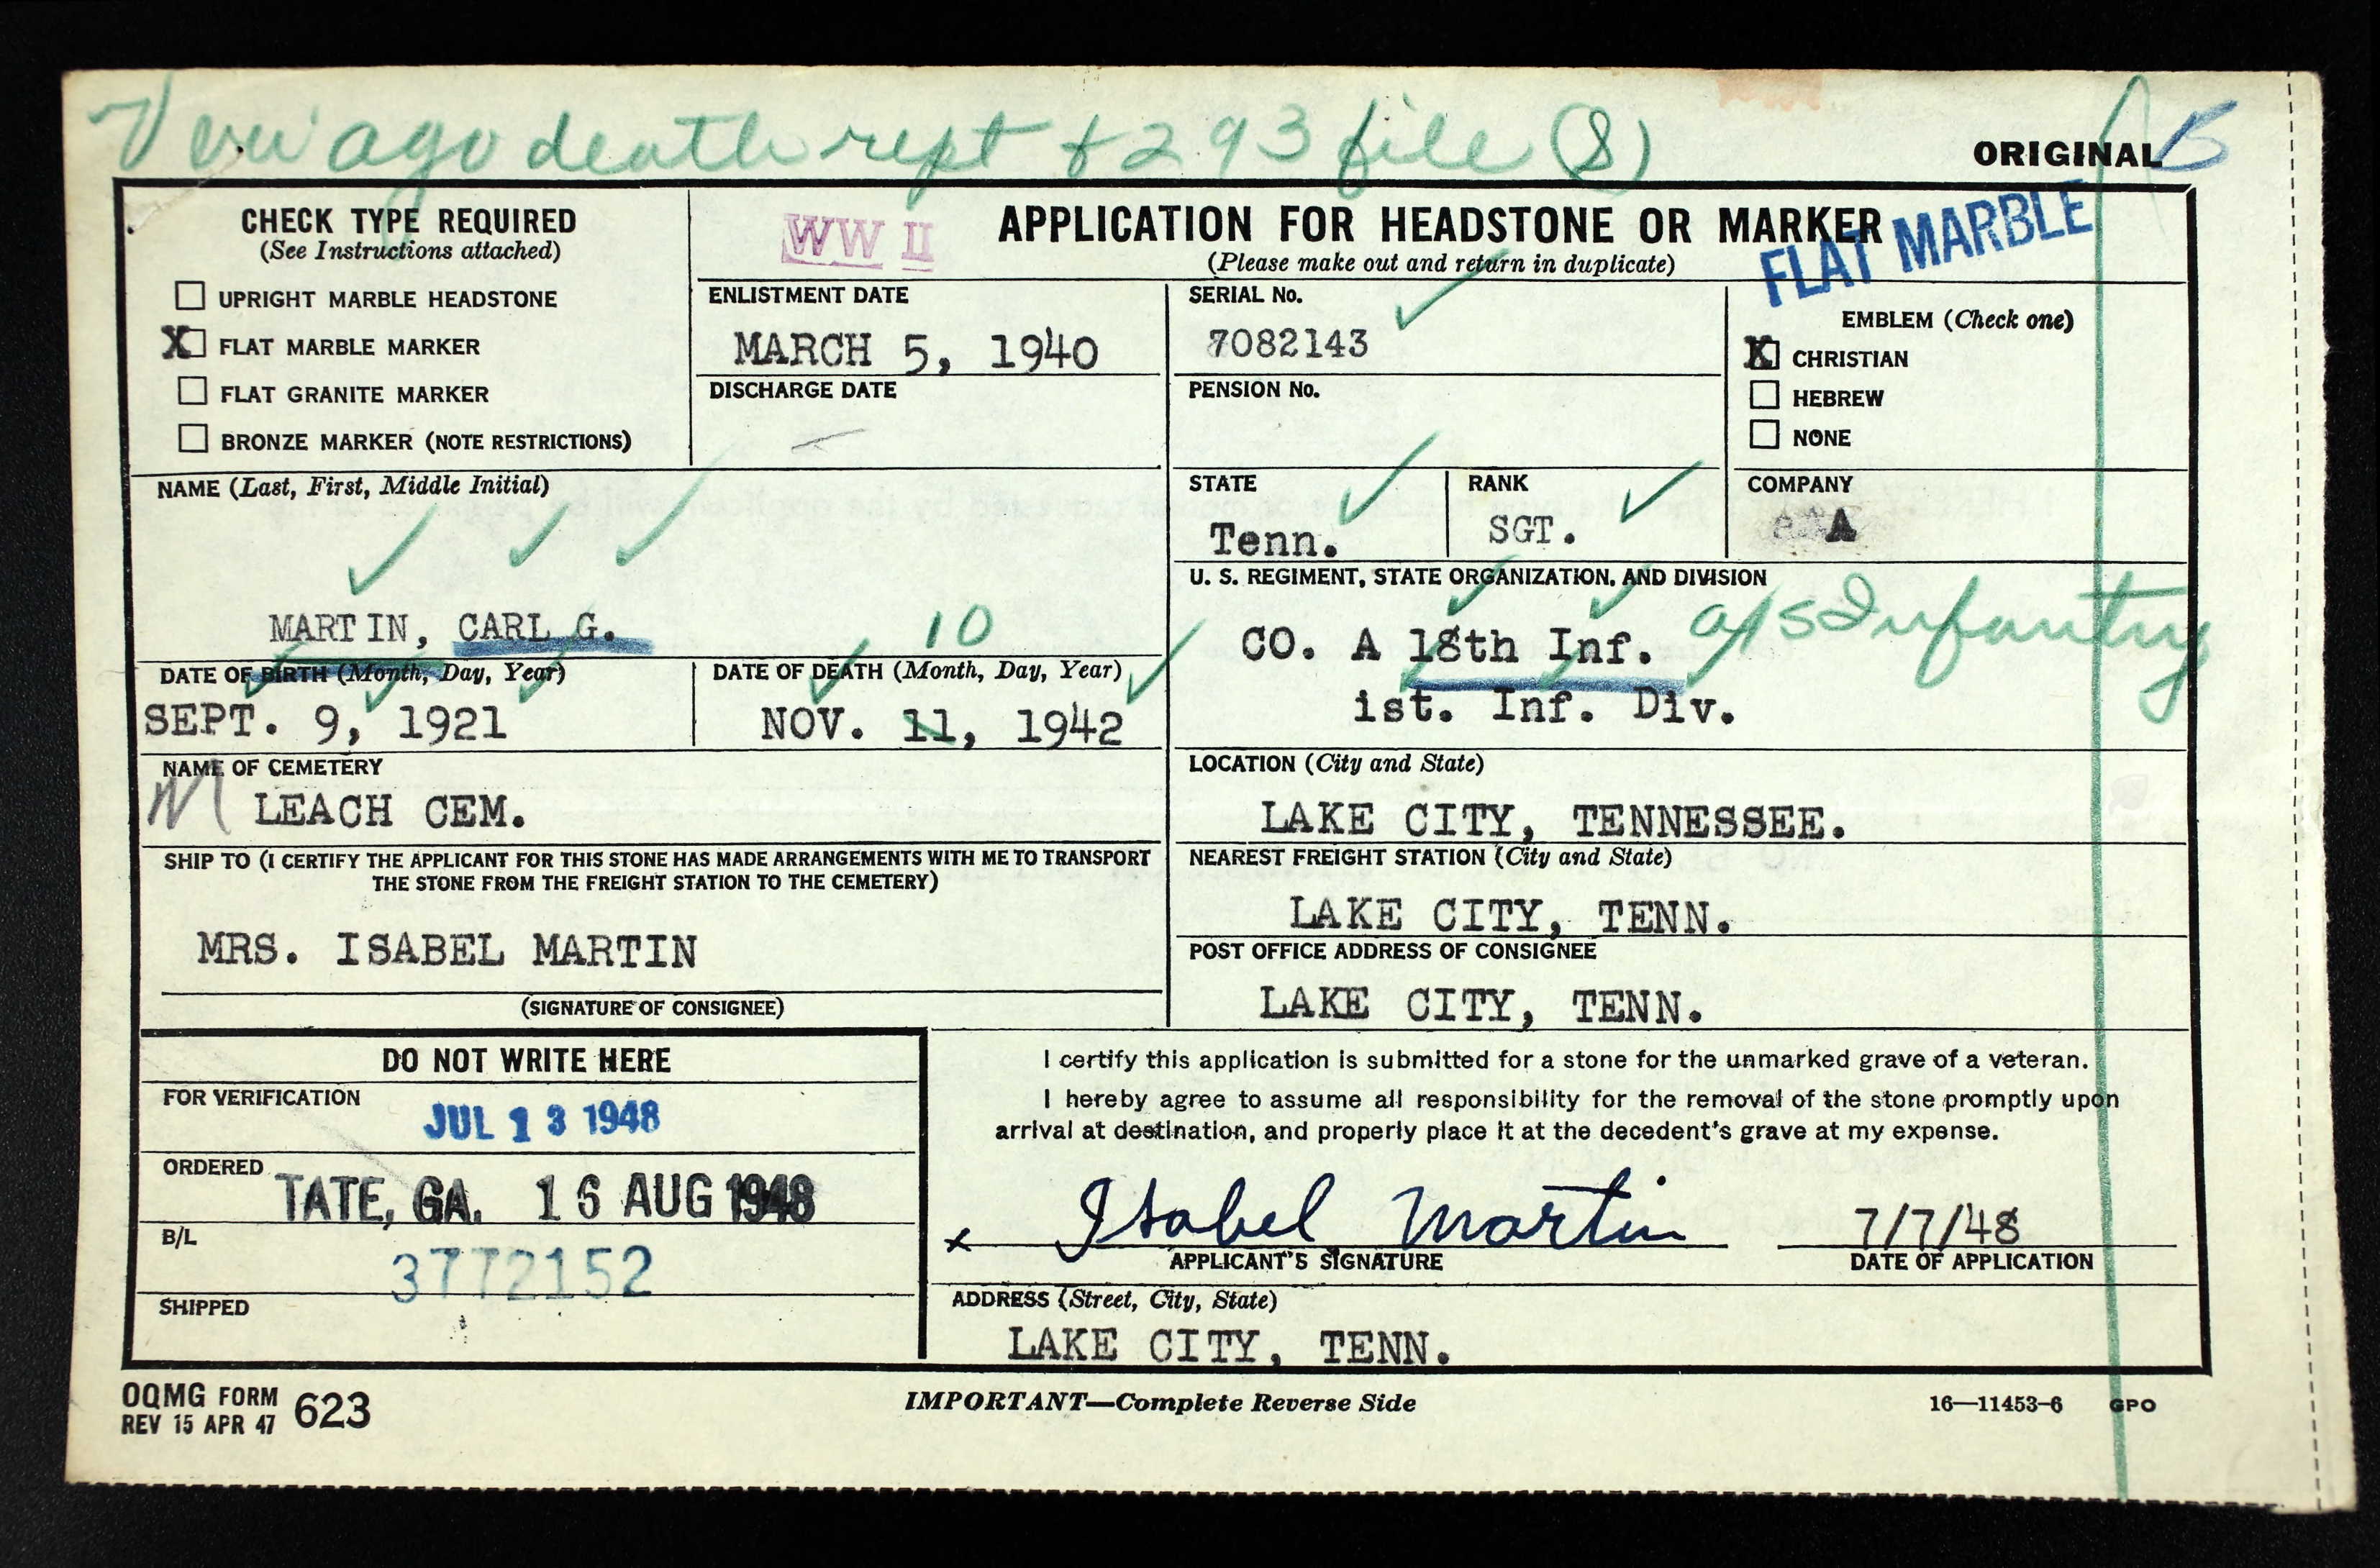 Veri ago death rept + 293 file (S)
ORIGINAL B
CHECK TYPE REQUIRED
(See Instructions attached)
UPRIGHT MARBLE HEADSTONE
X FLAT MARBLE MARKER
FLAT GRANITE MARKER
BRONZE MARKER (NOTE RESTRICTIONS)
WW II
APPLICATION FOR HEADSTONE OR MARKER
(Please make out and return in duplicate)
FLAT MARBLE
ENLISTMENT DATE
MARCH 5, 1940
DISCHARGE DATE
SERIAL No.
7082143
PENSION No.
EMBLEM (Check one)
X CHRISTIAN
HEBREW
NONE
NAME (Last, First, Middle Initial)
MARTIN, CARL G.
STATE
Tenn.
RANK
SGT.
COMPANY
A
U. S. REGIMENT, STATE ORGANIZATION, AND DIVISION
CO. A 18th Inf. a/s Infantry
ist. Inf. Div.
DATE OF BIRTH (Month, Day, Year)
SEPT. 9, 1921
DATE OF DEATH (Month, Day, Year)
10
NOV. 11, 1942
NAME OF CEMETERY
M LEACH CEM.
LOCATION (City and State)
LAKE CITY, TENNESSEE.
SHIP TO (I CERTIFY THE APPLICANT FOR THIS STONE HAS MADE ARRANGEMENTS WITH ME TO TRANSPORT
THE STONE FROM THE FREIGHT STATION TO THE CEMETERY)
MRS. ISABEL MARTIN
(SIGNATURE OF CONSIGNEE)
NEAREST FREIGHT STATION (City and State)
LAKE CITY, TENN.
POST OFFICE ADDRESS OF CONSIGNEE
LAKE CITY, TENN.
DO NOT WRITE HERE
FOR VERIFICATION
JUL 13 1948
ORDERED
TATE, GA. 16 AUG 1948
B/L
3772152
SHIPPED
I certify this application is submitted for a stone for the unmarked grave of a veteran.
I hereby agree to assume all responsibility for the removal of the stone promptly upon
arrival at destination, and properly place it at the decedent's grave at my expense.
x Isabel Martin 7/7/48
APPLICANT'S SIGNATURE DATE OF APPLICATION
ADDRESS (Street, City, State)
LAKE CITY, TENN.
OQMG FORM 623
REV 15 APR 47
IMPORTANT—Complete Reverse Side
16—11453-6 GPO